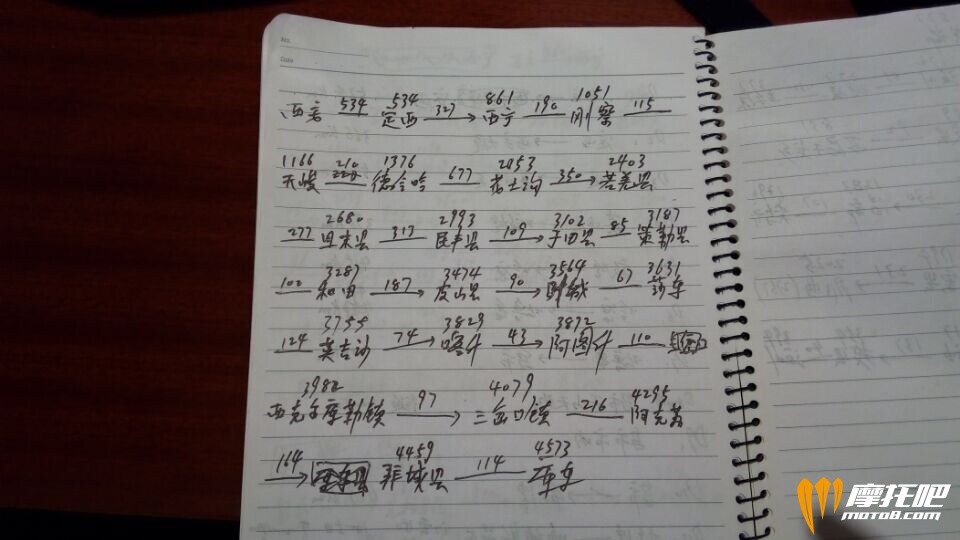 No.
Date
534 534 327 861 190 1051 115
西安 定西 西宁 刚察
1166 210 1376 677 2053 350 2403
天峻 德令哈 茫土沟 若羌县
277 2680 313 2993 109 3102 85 3187
且末县 民丰县 于田县 策勒县
100 3287 187 3474 90 3564 67 3631
和田 皮山县 叶城 莎车
124 3755 74 3829 43 3872 110
英吉沙 喀什 阿图什
3982 97 4079 216 4295
西克尔库勒镇 三岔口镇 阿克苏
164 4459 114 4573
拜城县 库车
摩托吧
moto8.com